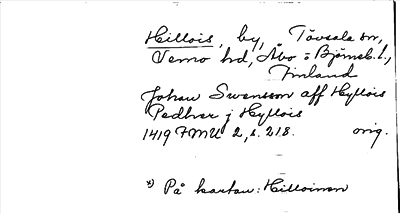 Hillois, by, Tövsala sn,
Vemo hd, Åbo o Björneb. l.,
Finland
Johan Swensson aff Hyllois
Pedher j Hyllois
1419 FMU 2, s. 218. orig.
*) På kartan: Hilloinen